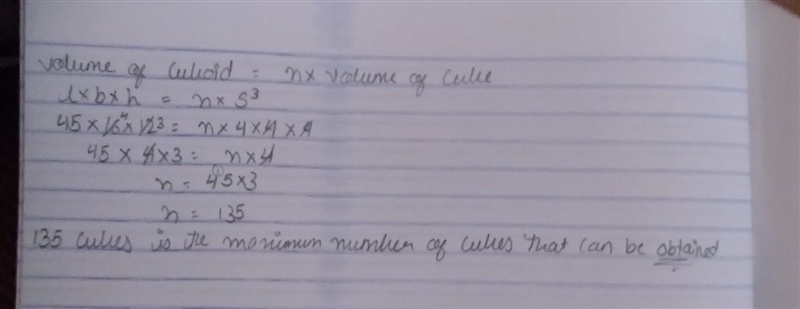 Volume of Cuboid = n× Volume of Cube
l×b×h = n× S³
45 × 16⁴ × 12³ = n × 4 × 4 × 4
45 × 4 × 3 = n × 4
n = 45×3
n = 135
135 Cubes is the maximum number of cubes that can be obtained